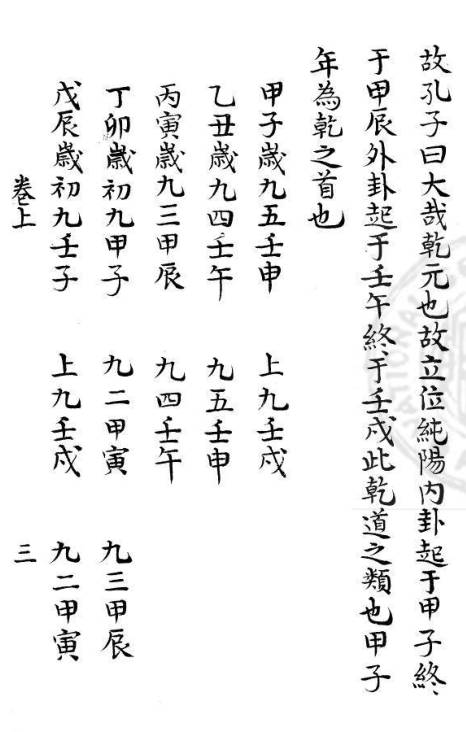 故孔子曰大哉乾元也故立位純陽内卦起于甲子終
于甲辰外卦起于壬午終于壬戍此乾道之類也甲子
年為乾之首也
甲子歲九五壬申 上九壬戍
乙丑歲九四壬午 九五壬申
丙寅歲九三甲辰 九四壬午
丁卯歲初九甲子 九二甲寅 九三甲辰
戊辰歲初九壬子 上九壬戍 九二甲寅
卷上 三